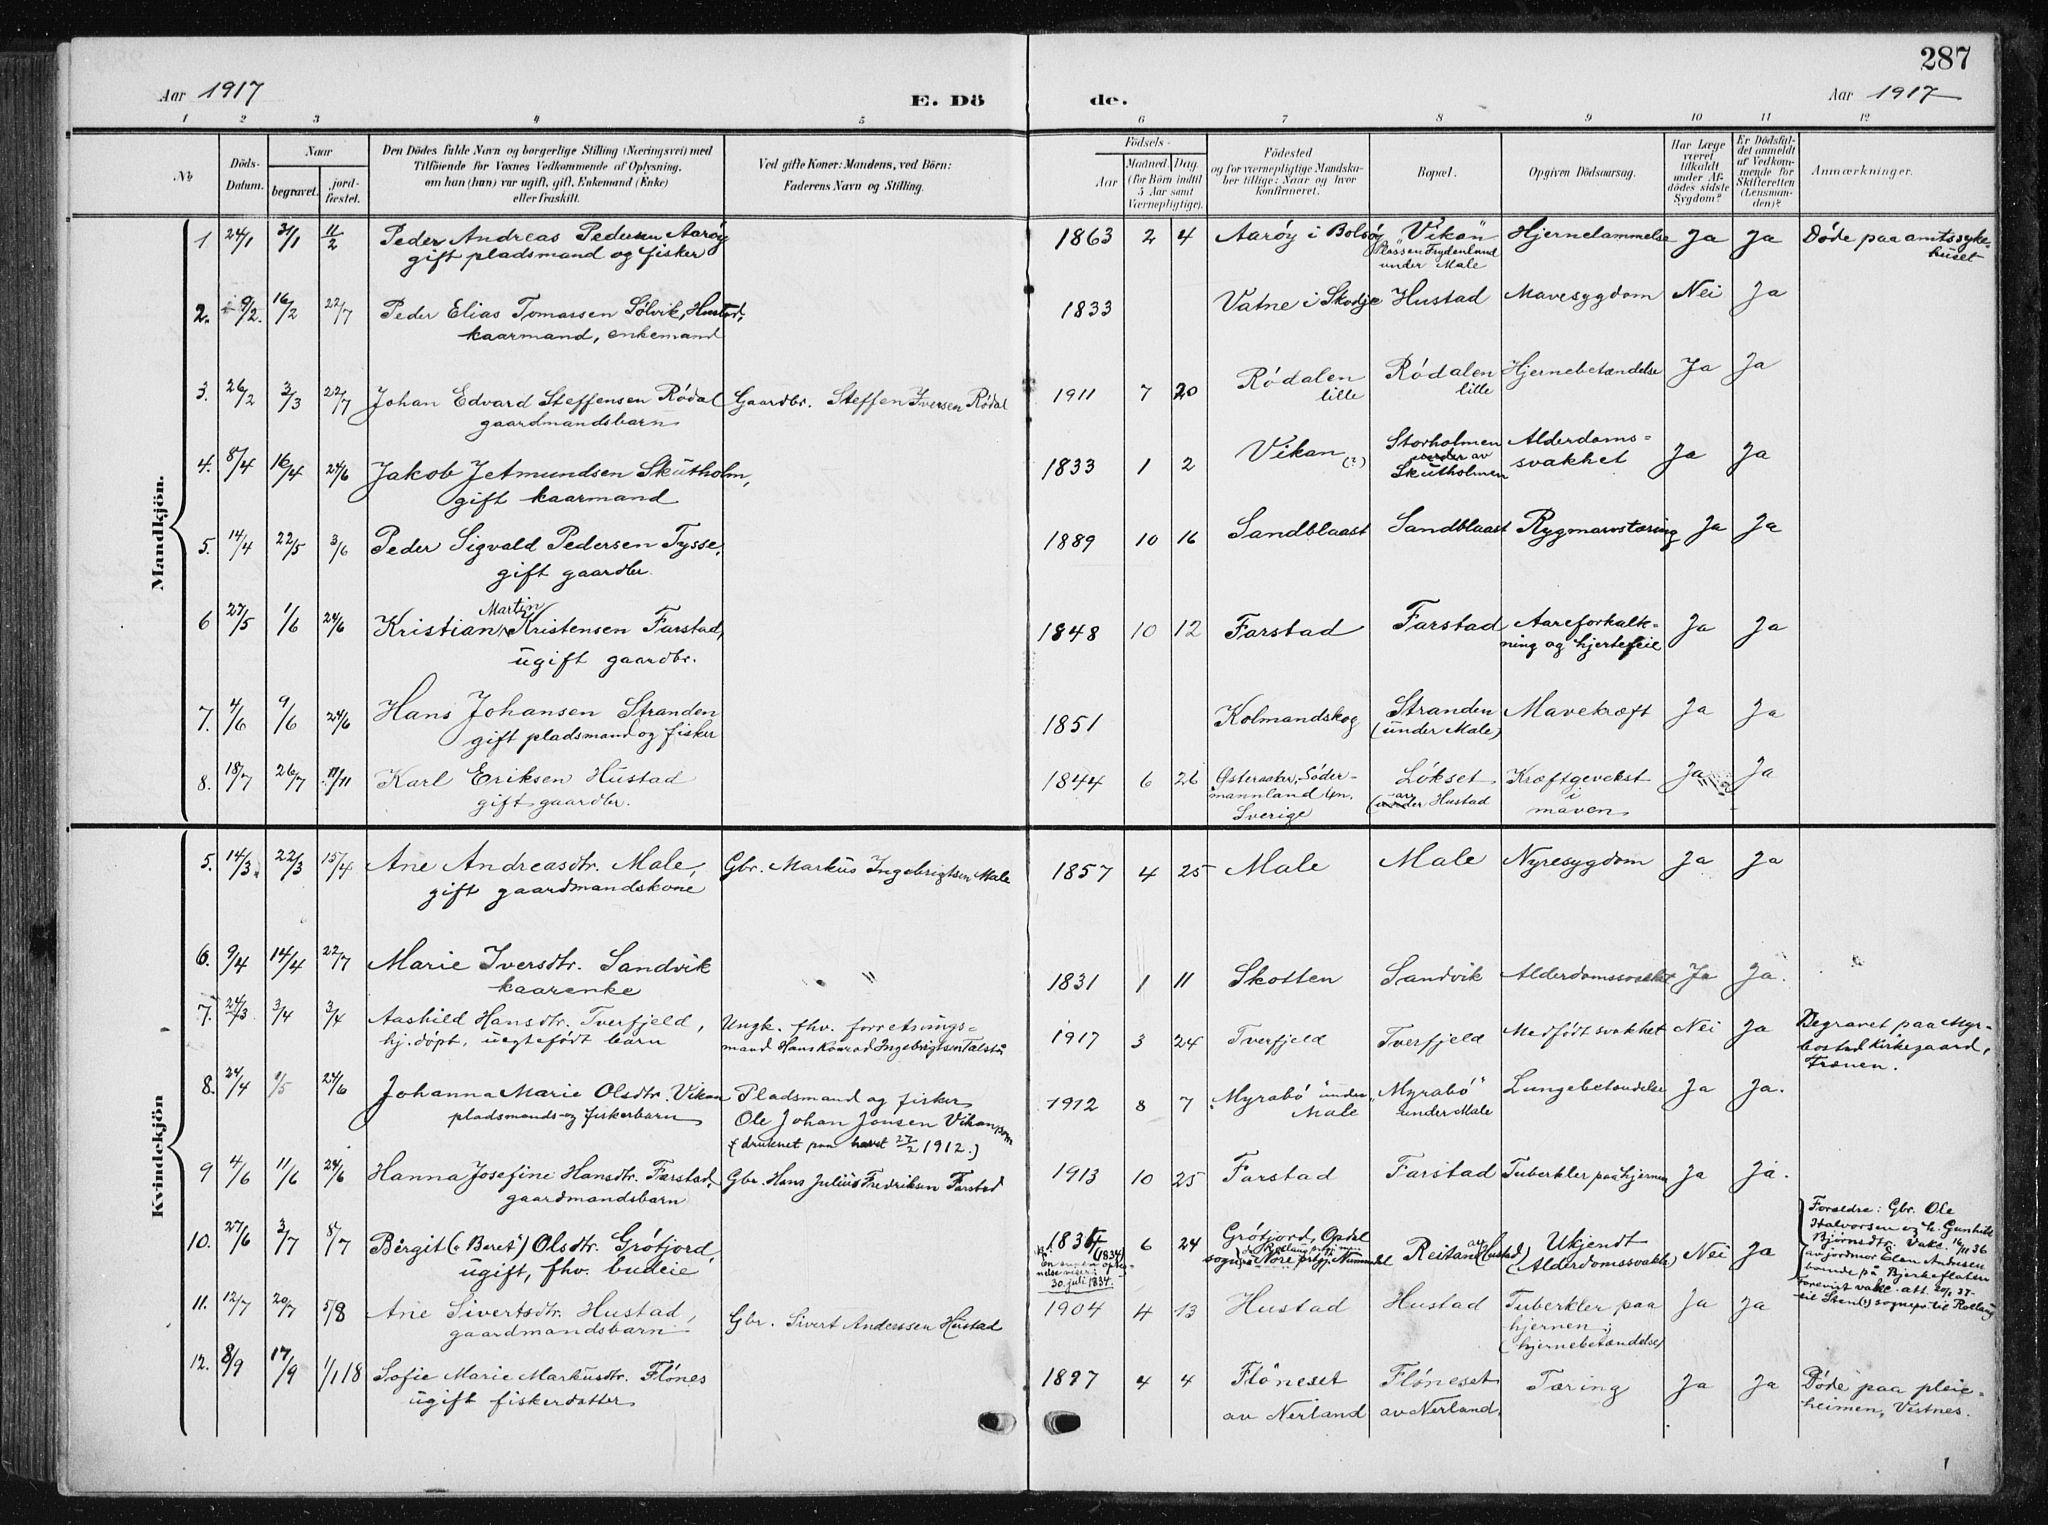 287
Aar 1917
E. Dö de.
Aar 1917
1 2 3 4 5 6 7 8 9 10 11 12
No
Döds-Datum.
Naar
begravet.
jord-fæstet.
Den Dödes fulde Navn og borgerlige Stilling (Næringsvei) med
Tilföiende for Voxnes Vedkommende af Oplysning,
om han (hun) var ugift, gift, Enkemand (Enke)
eller fraskilt.
Ved gifte Koner: Mandens, ved Börn:
Faderens Navn og Stilling.
Födsels-
Aar
Maaned. Dag.
(for Börn indtil
5 Aar samt
Værnepligtige).
Födested
og for værnepligtige Mandska-
ber tillige: Naar og hvor
konfirmeret.
Bopæl.
Opgiven Dödsaarsag.
Har Læge
været
tilkaldt
under Af-
dödes sidste
Sygdom?
Er Dödsfal-
det anmeldt
af Vedkom-
mende for
Skifteretten
(Lensman-
den)?
Anmærkninger.
Mandkjön.
1 24/1 31/1 11/2 Peder Andreas Pedersen Aarøy 1863 2 4 Aarøy i Bolsøy "Vikan" Hjernelammelse Ja Ja Døde paa amtssyke-
gift pladsmand og fisker Plassen Frydenlund huset
under Male
2. 9/2. 16/2 22/7 Peder Elias Tomassen Sølvik, Hustad, 1833 Vatne i Skodje Hustad Mavesygdom Nei Ja
kaarmand, enkemand
3. 26/2 3/3 22/7 Johan Edvard Steffensen Rødal Gaardbr. Steffen Iversen Rødal 1911 7 20 Rødalen Rødalen Hjernebetændelse Ja Ja
gaardmandsbarn lille lille
4. 8/4 16/4 24/6 Jakob Jetmundsen Skutholm, 1833 1 2 Vikan (?) Storholmen Alderdoms- Ja Ja
gift kaarmand under av svakhet
Skutholmen
5. 14/4 22/5 3/6 Peder Sigvald Pedersen Tysse, 1889 10 16 Sandblaast Sandblaast Rygmarvstæring Ja Ja
gift gaardbr.
6 27/5 1/6 24/6 Kristian Martin Kristensen Farstad, 1848 10 12 Farstad Farstad Aareforkalk- Ja Ja
ugift gaardbr. ning og hjertefeil
7. 4/6 9/6 24/6 Hans Johansen Stranden 1851 Kolmandskog Stranden Mavekræft Ja Ja
gift pladsmand og fisker (under Male)
8. 18/7 26/7 11/11 Karl Eriksen Hustad 1844 6 26 Østeraaker, Søder- Løkset Kræftgevekst Ja Ja
gift gaardbr. mannland len. (under av Hustad i
Sverige maven
Kvindekjön
5. 14/3. 22/3 15/4 Ane Andreasdtr. Male, Gbr. Markus Ingebrigtsen Male 1857 4 25 Male Male Nyresygdom Ja Ja
gift gaardmandskone
6. 9/4 14/4 22/7 Marie Iversdtr. Sandvik " 1831 1 11 Skotten Sandvik Alderdomssvakhet Ja Ja.
kaarenke
7. 24/3 3/4 3/4 Aashild Hansdtr. Tverfjeld, Ungk. fhv. forretnings- 1917 3 24 Tverfjeld Tverfjeld Medfødt svakhet Nei Ja Begravet paa Myr-
hj. døpt, uegtefødt barn mand Hans Konrad Ingebrigtsen Talstu bostad kirkegaard,
Frænen.
8. 24/4 1/5 24/6 Johanna Marie Olsdtr. Vikan Pladsmand og fisker 1912 8 7 "Myrabø" under "Myrabø" Lungebetændelse Ja Ja.
pladsmands- og fiskerbarn Ole Johan Jonsen Vikan, som Male under Male
(druknet paa havet 27/2 1912.)
9 4/6 11/6 24/6 Hanna Josefine Hansdtr. Farstad, Gbr. Hans Julius Fredriksen Farstad 1913 10 25 Farstad Farstad Tuberkler paa hjernen Ja Ja.
gaardmandsbarn
10. 27/6 3/7 8/7 Birgit ("Beret") Olsdtr. Grøtjord, 1835 (1834) 6 24 Grøtjord, Opdal Reitan av (Hustad) Ukjendt Nei Ja Foreldre: Gbr. Ole
ugift, fhv. budeie sogn, Nore prgj. Nummedal (Alderdomssvakhet) Halvorsen og h. Gunhild
30. juli 1834. Bjørnsdtr. Vakc. 16/11 36
av jordmor Elen Andresen
11. 12/7 20/7 5/8 Ane Sivertsdtr. Hustad, Gbr. Sivert Anderssen Hustad 1904 4 13 Hustad Hustad Tuberkler paa Ja Ja
gaardmandsbarn hjernen
(hjernebetændelse)
12. 8/9 17/9 1/1 18 Sofie Marie Markusdtr. Flønes 1897 4 4 Fløneset Fløneset Tæring Ja Ja Døde paa pleie-
ugift fiskerdatter av Nerland av Nerland. heimen, Vestnes.